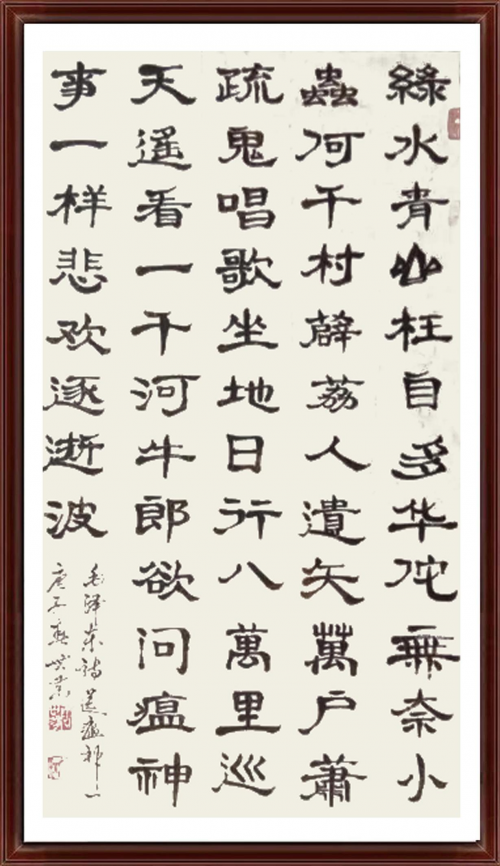 綠水青山枉自多华佗無奈小
蟲何千村薜荔人遺矢萬户蕭
疏鬼唱歌坐地日行八萬里巡
天遙看一千河牛郎欲问瘟神
事一样悲欢逐逝波
毛泽东诗送瘟神一
庚子春